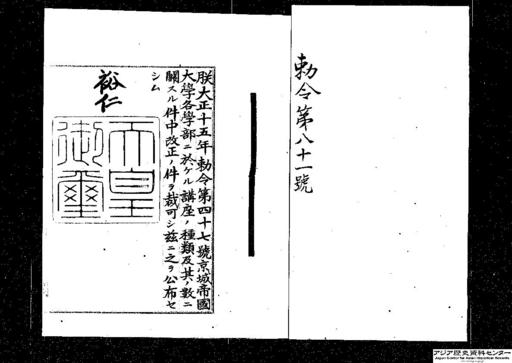 勅令第八十一號
朕大正十五年勅令第四十七號京城帝國
大學各學部ニ於ケル講座ノ種類及其ノ數ニ
關スル件中改正ノ件ヲ裁可シ茲ニ之ヲ公布セ
シム
裕仁
天皇
御璽
アジア歴史資料センター
Japan Center for Asian Historical Records